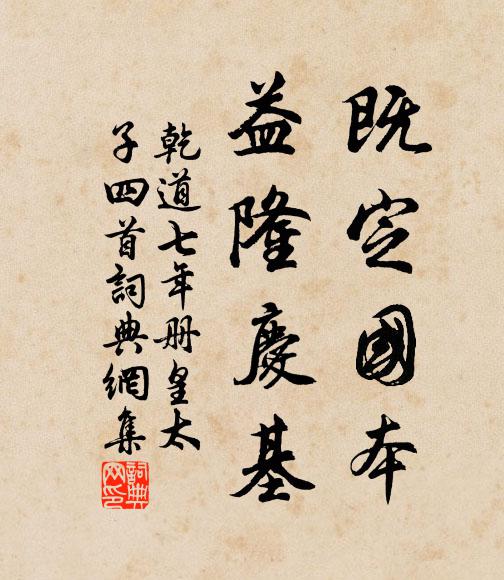 既定國本
益隆慶基
乾道七年册皇太
子四首詞典網集
詞典
网印